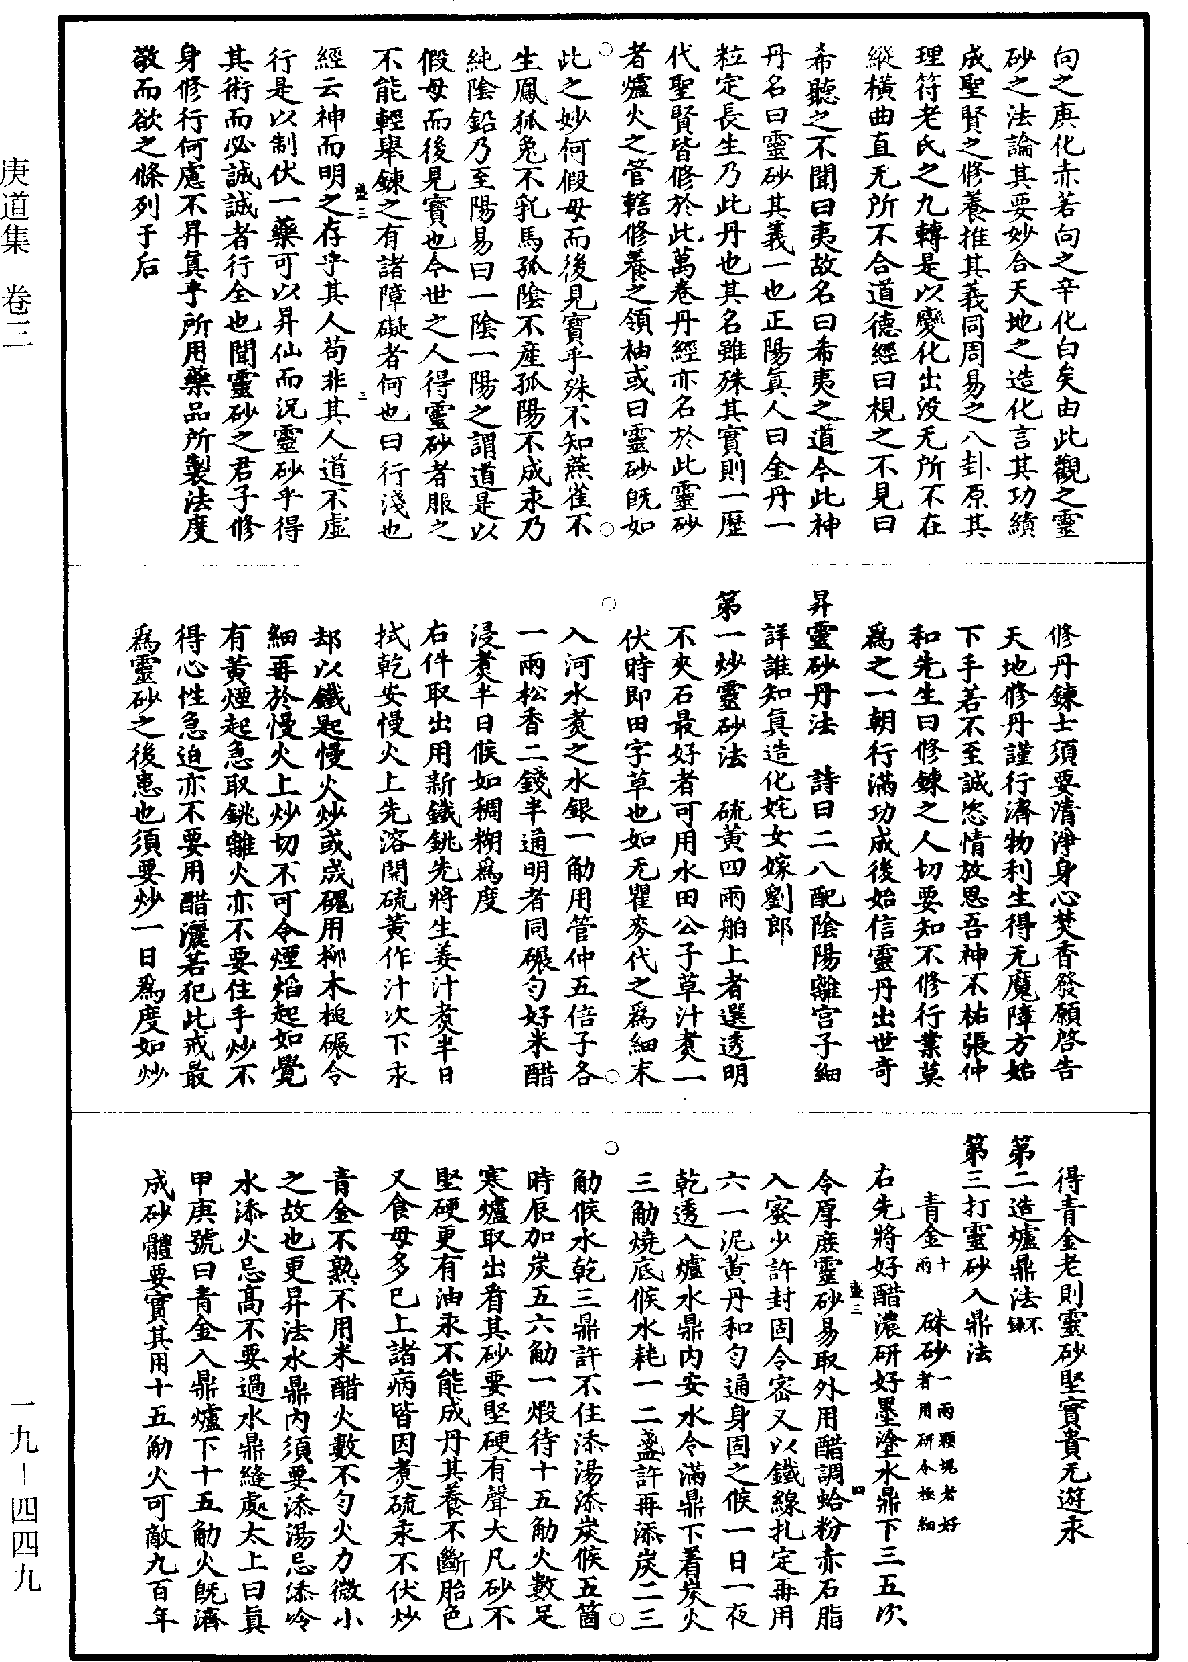 向之庚化赤若向之辛化白矣由此觀之靈
砂之法論其要妙合天地之造化言其功績
成聖賢之修養推其義同周易之八卦原其
理符老氏之九轉是以變化出没无所不在
縱橫曲直无所不合道德經曰視之不見曰
希聽之不聞曰夷故名曰希夷之道今此神
丹名曰靈砂其義一也正陽真人曰金丹一
粒定長生乃此丹也其名雖殊其實則一歷
代聖賢皆修於此萬卷丹經亦名於此靈砂
者爐火之管轄修養之領柚或曰靈砂旣如
此之妙何假母而後見寶乎殊不知燕雀不
生鳳狐兔不乳馬孤陰不産孤陽不成汞乃
純陰鉛乃至陽易曰一陰一陽之謂道是以
假母而後見寶也今世之人得靈砂者服之
不能輕舉鍊之有諸障礙者何也曰行淺也
經云神而明之存乎其人苟非其人道不虛
行是以制伏一藥可以昇仙而況靈砂乎得
其術而必誠誠者行全也聞靈砂之君子修
身修行何慮不昇真乎所用藥品所製法度
敬而欲之條列于后
修丹鍊士須要清淨身心焚香發願啓告
天地修丹謹行濟物利生得无魔障方始
下手若不至誠恣情放思吾神不祐張仲
和先生曰修鍊之人切要知不修行業莫
爲之一朝行滿功成後始信靈丹出世奇
昇靈砂丹法　詩曰二八配陰陽離宫子細
詳誰知真造化姹女嫁劉郎
第一炒靈砂法　硫黄四兩舶上者選透明
不夾石最好者可用水田公子草汁煮一
伏時即田字草也如无瞿麥代之爲細末
入河水煮之水銀一觔用管仲五倍子各
一兩松香二錢半通明者同碾勻好米醋
浸煮半日候如稠糊爲度
右件取出用新鐵銚先將生姜汁煮半日
拭乾安慢火上先溶開硫黄作汁次下汞
却以鐵匙慢火炒或成磈用柳木槌碾令
細再於慢火上炒切不可令煙焰起如覺
有黄煙起急取銚離火亦不要住手炒不
得心性急迫亦不要用醋灑若犯此戒最
爲靈砂之後患也須要炒一日爲度如炒
得青金老則靈砂堅實貴无遊汞
第二造爐鼎法不録
第三打靈砂入鼎法
青金十兩　硃砂一兩顆塊者好者用研令極細
右先將好醋濃研好墨塗水鼎下三五次
令厚庶靈砂易取外用醋調蛤粉赤石脂
入蜜少許封固令密又以鐵線扎定再用
六一泥黄丹和勻通身固之候一日一夜
乾透入爐水鼎内安水令滿鼎下着炭火
三觔燒底候水耗一二盞許再添炭二三
觔候水乾三鼎許不住添湯添炭候五箇
時辰加炭五六觔一煅待十五觔火數足
寒爐取出看其砂要堅硬有聲大凡砂不
堅硬更有油汞不能成丹其養不斷胎色
又食母多巳上諸病皆因煮硫汞不伏炒
青金不熟不用米醋火數不勻火力微小
之故也更昇法水鼎内須要添湯忌添冷
水添火忌高不要過水鼎縫處太上曰真
甲庚號曰青金入鼎爐下十五觔火旣濟
成砂體要實其用十五觔火可敵九百年
盡三　三
盡三　四
庚道集　卷三
一九－四四九